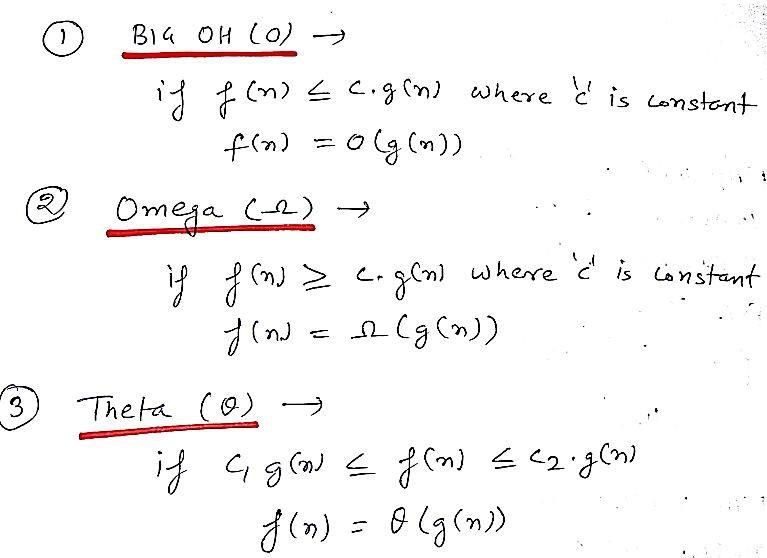 ① BIG OH (O) →
if f(n) ≤ c.g(n) where 'c' is constant
f(n) = O(g(n))
② Omega (Ω) →
if f(n) ≥ c.g(n) where 'c' is constant
f(n) = Ω(g(n))
③ Theta (θ) →
if c₁ g(n) ≤ f(n) ≤ c₂.g(n)
f(n) = θ(g(n))